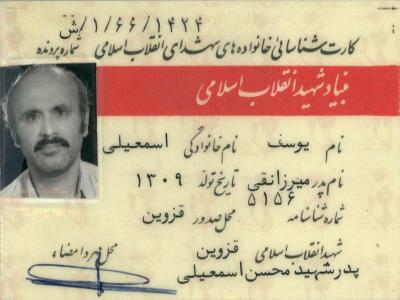 ۱/۶۶/۱۴۲۴/ش
کارت شناسائی خانواده های شهدای انقلاب اسلامی شماره پرونده
بنیاد شهید انقلاب اسلامی
نام یوسف نام خانوادگی اسمعیلی
نام پدر میرزانقی تاریخ تولد ۱۳۰۹
شماره شناسنامه ۵۱۵۶ محل صدور قزوین
شهید انقلاب اسلامی قزوین محل مهر و امضاء
پدر شهید محسن اسمعیلی